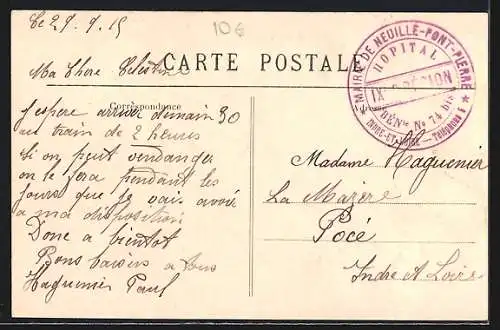 Le 29. 9. 15
10€
CARTE POSTALE
Ma Chere Celestine
Correspondance
Adresse
MAIRIE DE NEUILLE-PONT-PIERRE
HOPITAL
IXe RÉGION
BÉNle No 74 bis
INDRE-ET-LOIRE — Téléphone
J'espere arriver demain 30
au train de 2 heures
Si on peut vendanger
on le fera pendant les
jours que je vais avoir
a ma disposition
Donc a bientot
Bons baisers a tous
Haguenier Paul
Madame Haguenier
La Mazere
Pocé
Indre et Loire